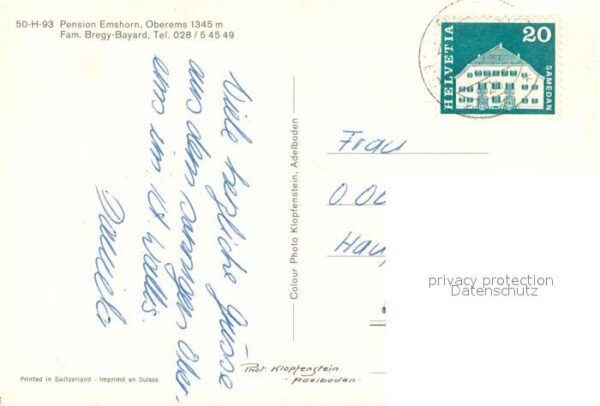 50-H-93 Pension Emshorn, Oberems 1345 m
Fam. Bregy-Bayard, Tel. 028 / 5 45 49
Viele herzliche Grüsse
aus dem sonnigen Ober-
ems im Kt. Wallis.
Daniela
Colour Photo Klopfenstein, Adelboden
Phot Klopfenstein
- Adelboden -
Printed in Switzerland - Imprimé en Suisse
HELVETIA
20
SAMEDAN
Frau
privacy protection
Datenschutz